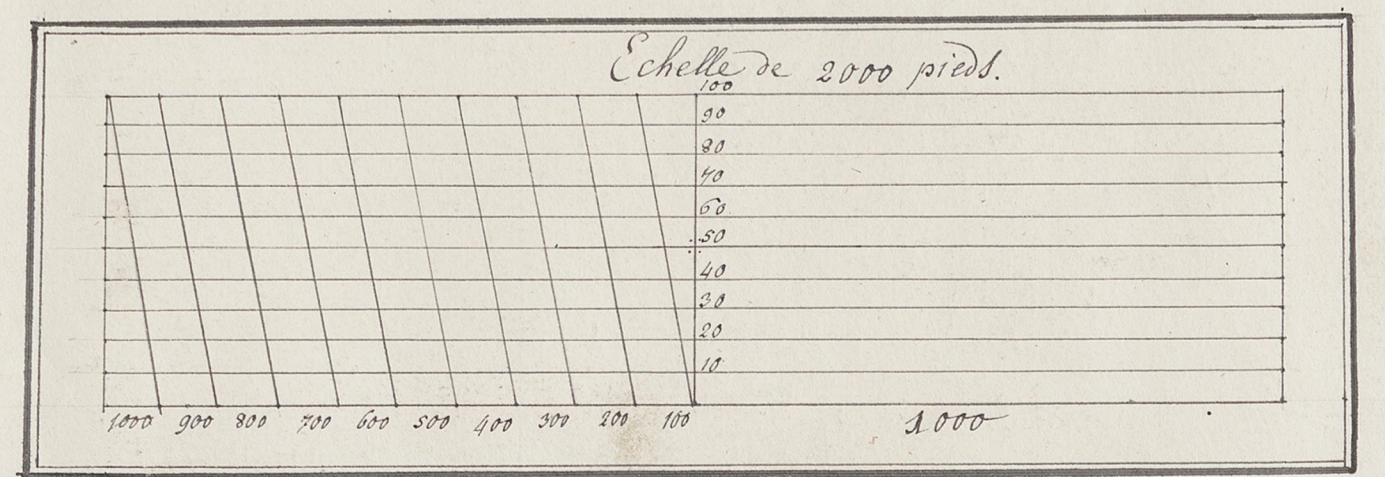 Echelle de 2000 pieds.
100
90
80
70
60
50
40
30
20
10
1000 900 800 700 600 500 400 300 200 100 1000